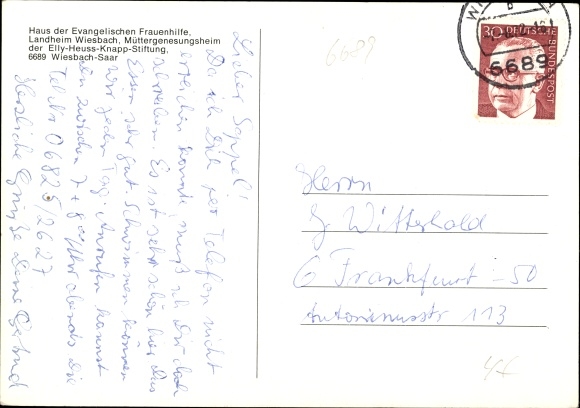 Haus der Evangelischen Frauenhilfe,
Landheim Wiesbach, Müttergenesungsheim
der Elly-Heuss-Knapp-Stiftung,
6689 Wiesbach-Saar
6689
30
DEUTSCHE BUNDESPOST
6689
Lieber Seppel!
Da ich Dich per Telefon nicht
erreichen konnte, muß ich Dir doch
schreiben. Es ist sehr schön hier das
Essen sehr gut. Schwimmen können
wir jeden Tag. Anrufen kannst
zwischen 7 + 8 Uhr abends die
Tel Nr 06825/2627
Herzliche Grüße Deine
Herrn
J Witthold
6 Frankfurt-50
Antoniusstr 113